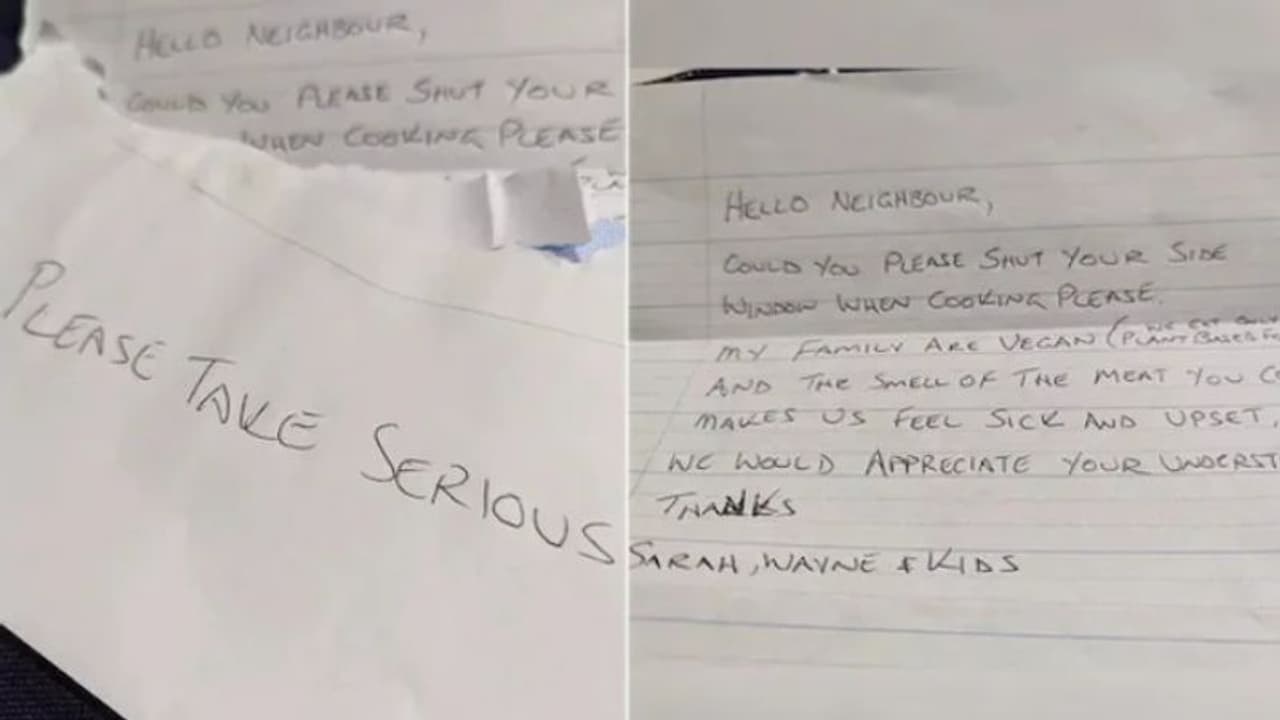 HELLO NEIGHBOUR,
COULD YOU PLEASE SHUT YOUR
WHEN COOKING PLEASE
PLEASE TAKE SERIOUS
HELLO NEIGHBOUR,
COULD YOU PLEASE SHUT YOUR SIDE
WINDOW WHEN COOKING PLEASE.
MY FAMILY ARE VEGAN (WE EAT ONLY
PLANT BASED FO
AND THE SMELL OF THE MEAT YOU CO
MAKES US FEEL SICK AND UPSET,
WE WOULD APPRECIATE YOUR UNDERST
THANKS
SARAH, WAYNE & KIDS